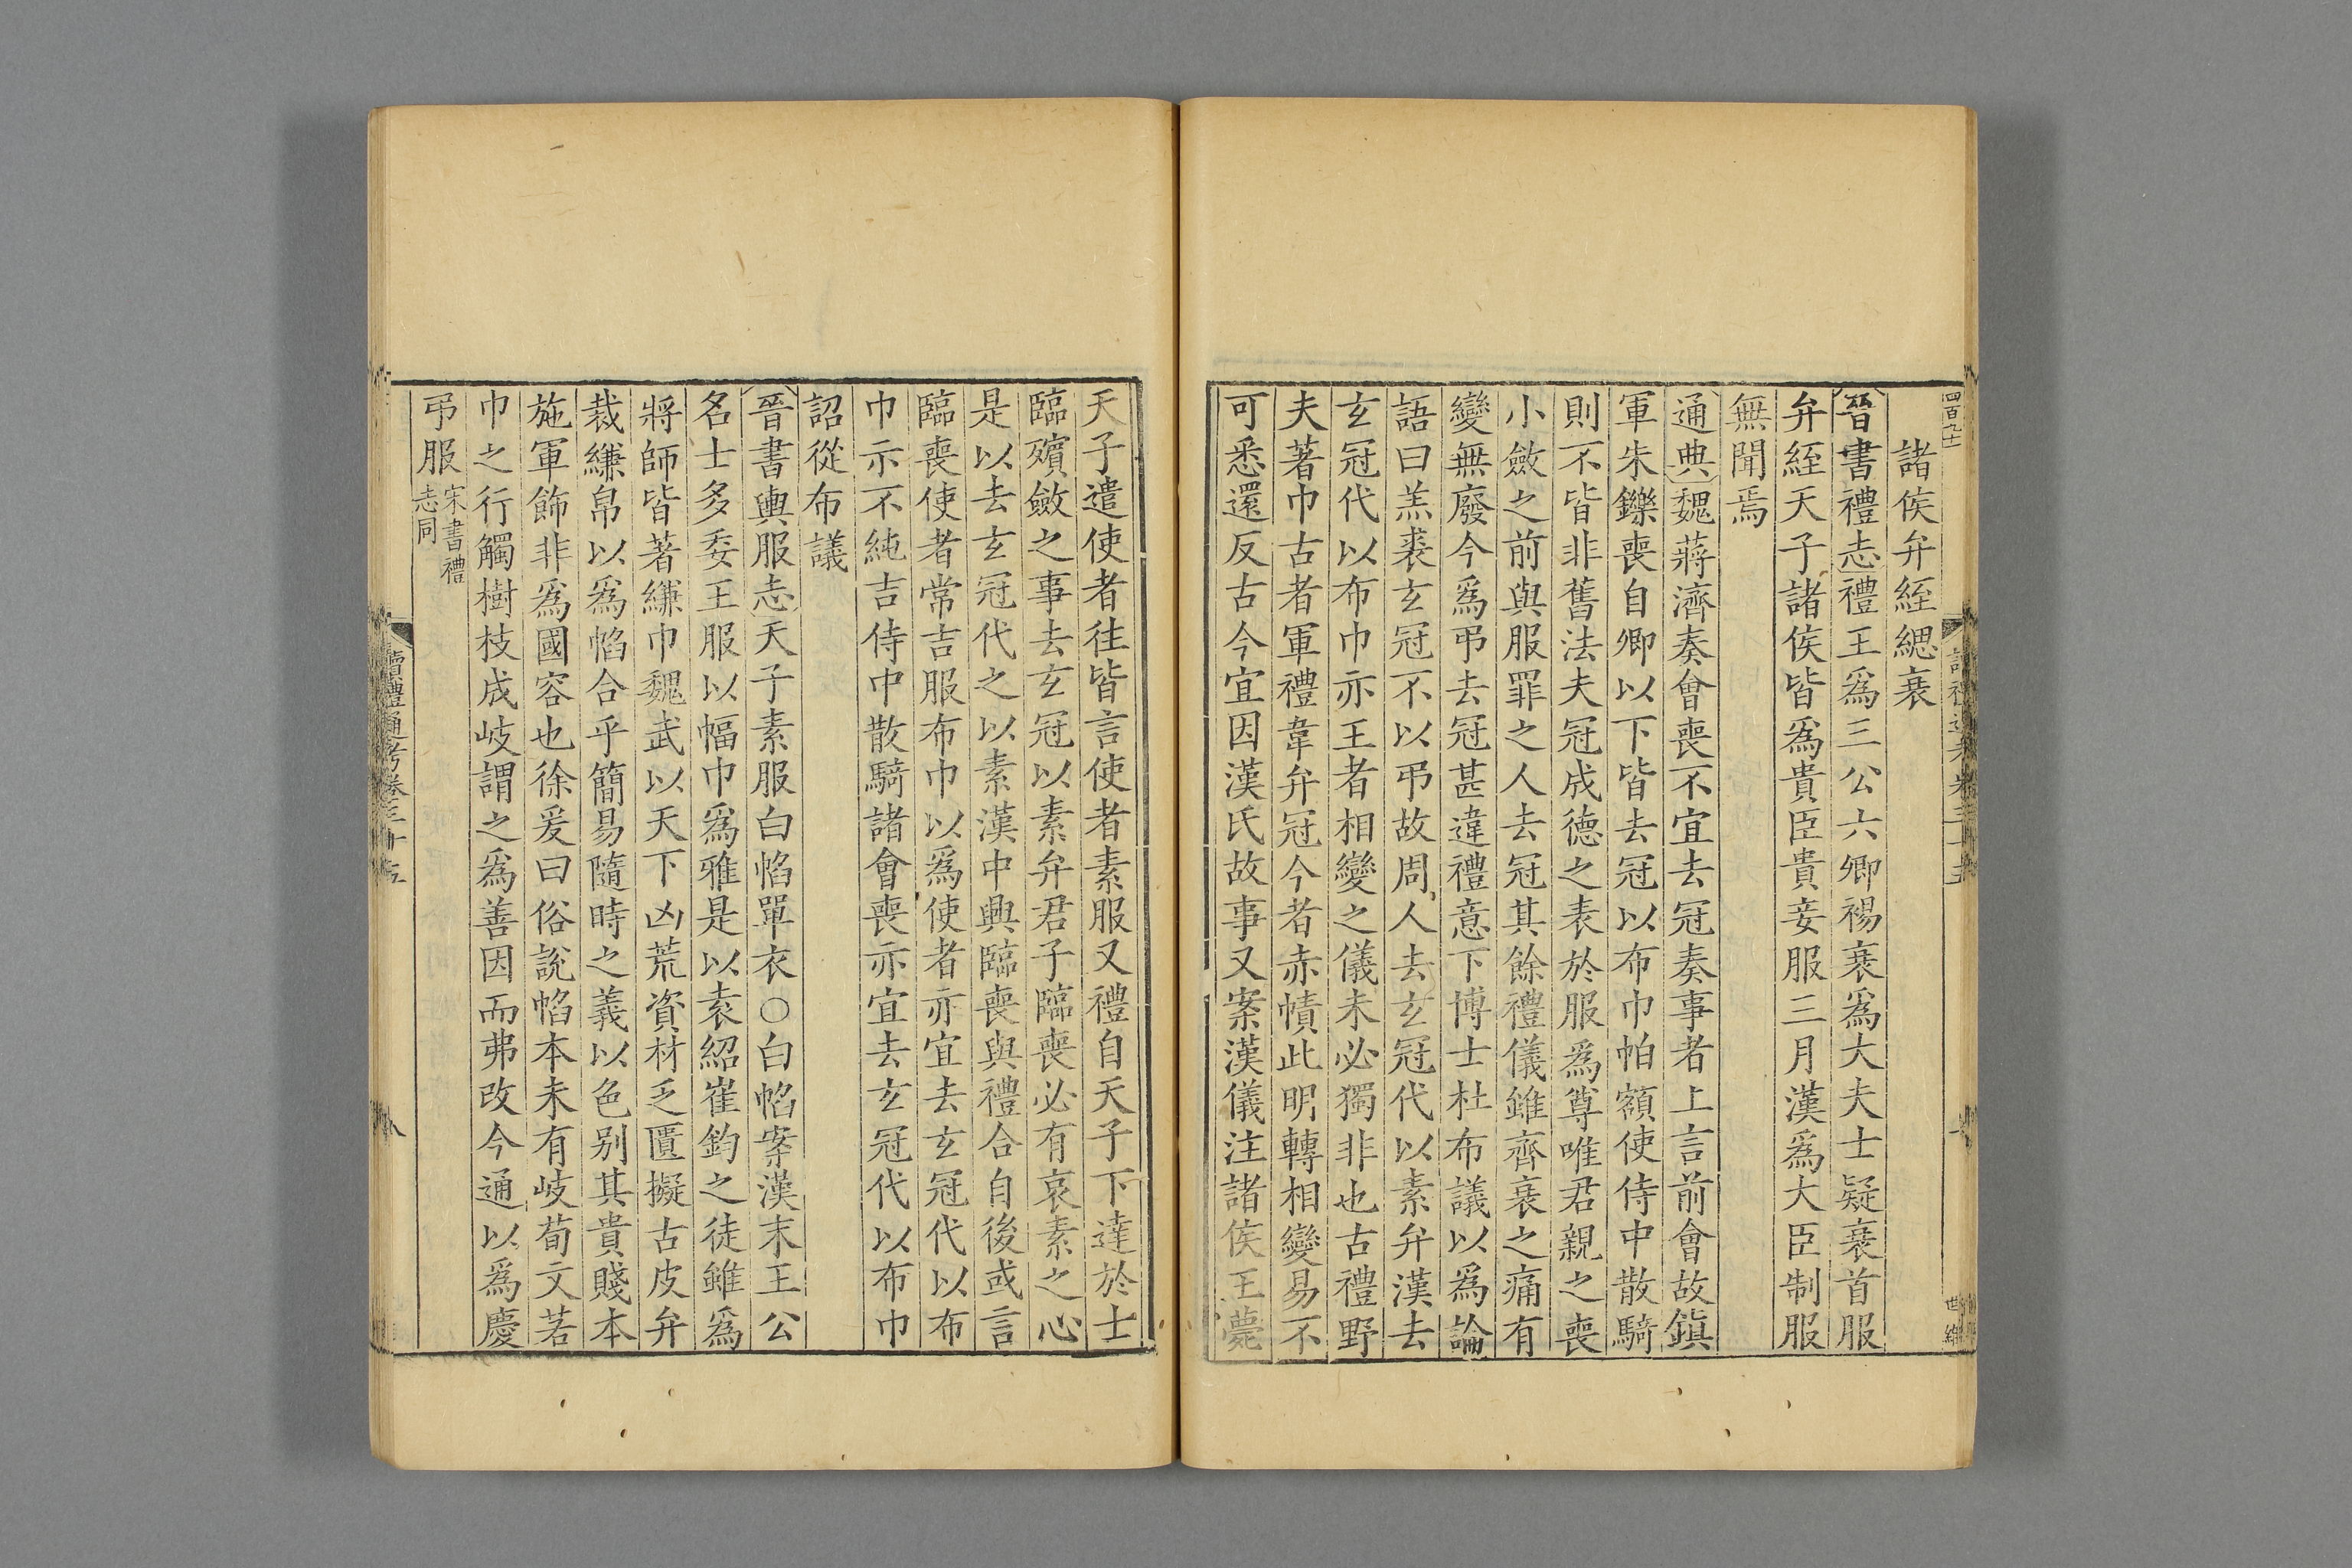 諸侯弁絰緦衰
晉書禮志禮王爲三公六卿裼衰爲大夫士疑衰首服
弁絰天子諸侯皆爲貴臣貴妾服三月漢爲大臣制服
無聞焉
通典魏蔣濟奏會喪不宜去冠奏事者上言前會故鎭
軍朱鑠喪自卿以下皆去冠以布巾帕額使侍中散騎
則不皆非舊法夫冠成德之表於服爲尊唯君親之喪
小斂之前與服罪之人去冠其餘禮儀雖齊衰之痛有
變無廢今爲弔去冠甚違禮意下博士杜布議以爲論
語曰羔裘玄冠不以弔故周人去玄冠代以素弁漢去
玄冠代以布巾亦王者相變之儀未必獨非也古禮野
夫著巾古者軍禮韋弁冠今者赤幘此明轉相變易不
可悉還反古今宜因漢氏故事又案漢儀注諸侯王薨
天子遣使者往皆言使者素服又禮自天子下達於士
臨殯斂之事去玄冠以素弁君子臨喪必有哀素之心
是以去玄冠代之以素漢中興臨喪與禮合自後或言
臨喪使者常吉服布巾以爲使者亦宜去玄冠代以布
巾示不純吉侍中散騎諸會喪亦宜去玄冠代以布巾
詔從布議
晉書輿服志天子素服白帢單衣○白帢案漢末王公
名士多委王服以幅巾爲雅是以袁紹崔鈞之徒雖爲
將師皆著縑巾魏武以天下凶荒資材乏匱擬古皮弁
裁縑帛以爲帢合乎簡易隨時之義以色別其貴賤本
施軍飾非爲國容也徐爰曰俗說帢本未有岐荀文若
巾之行觸樹枝成岐謂之爲善因而弗改今通以爲慶
弔服宋書禮志同
讀禮通考卷三十五